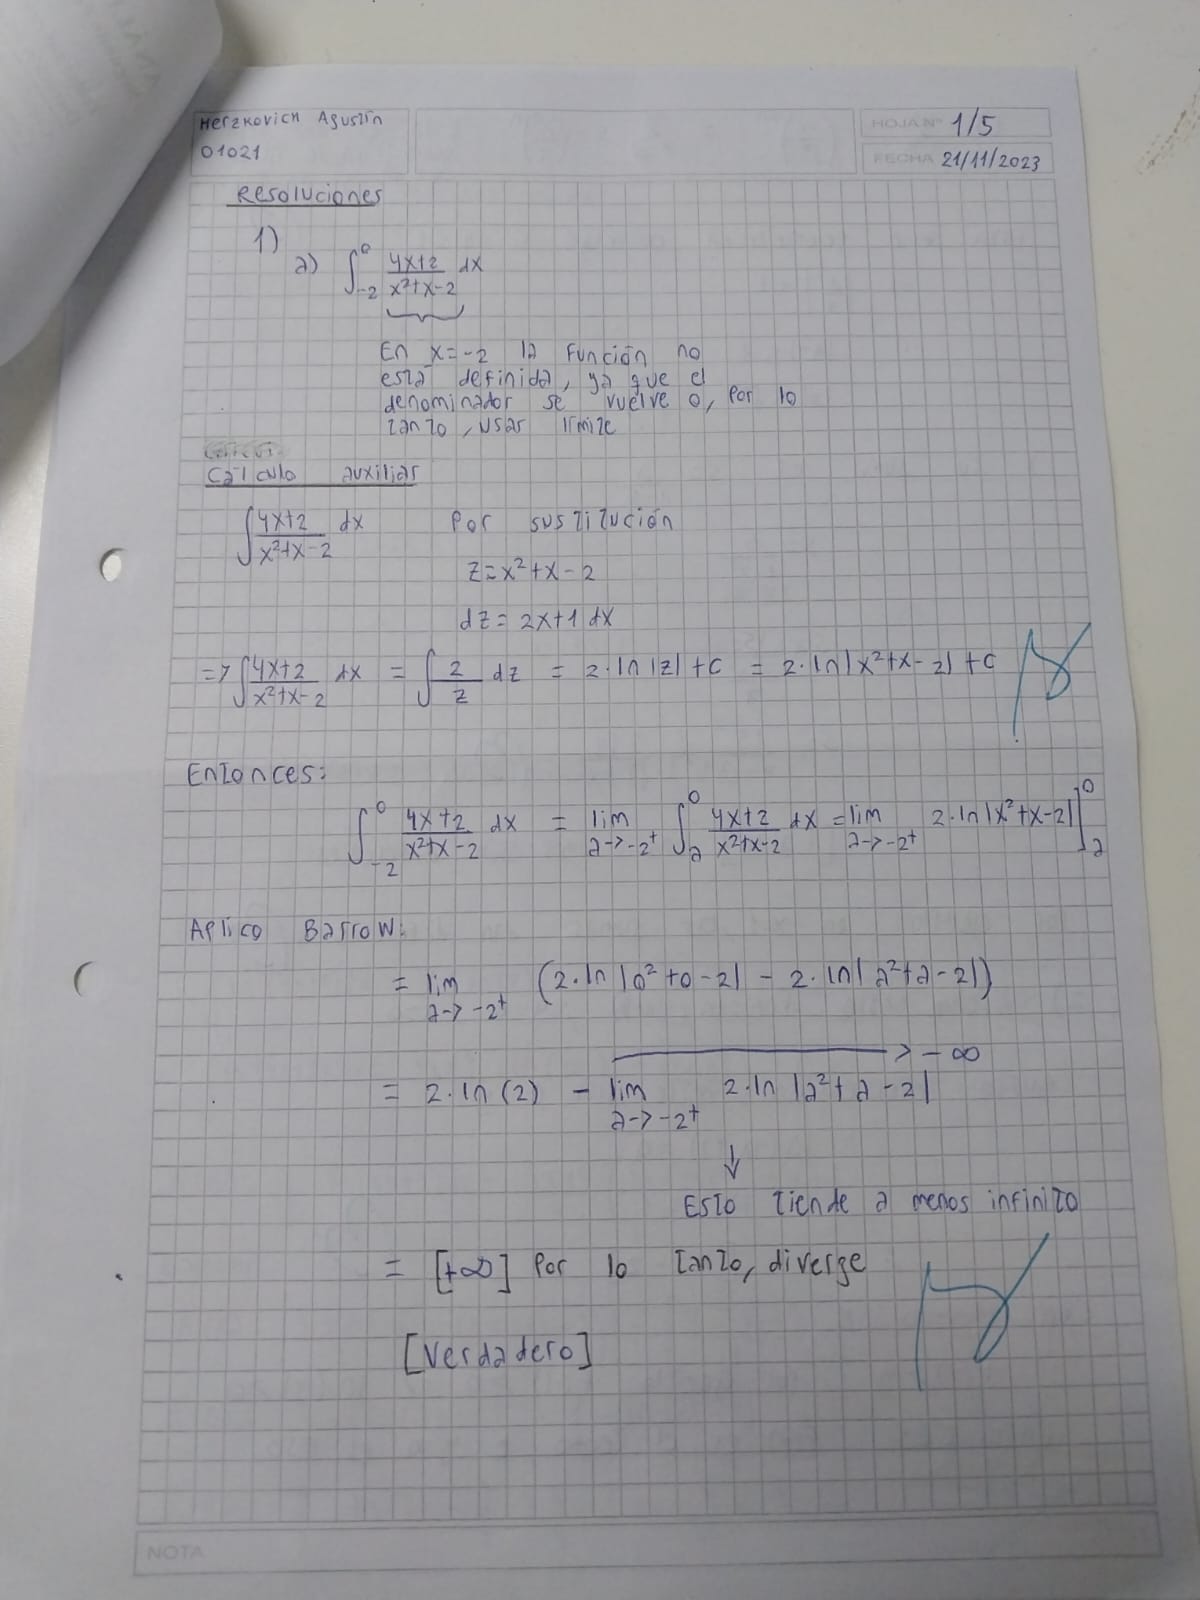 Herzkovich Agustín
01021
HOJA Nº 1/5
FECHA 21/11/2023
Resoluciones
1)
a) ∫_{-2}^{0} (4x+2)/(x²+x-2) dx
En x=-2 la función no
está definida, ya que el
denominador se vuelve 0, por lo
tanto, usar límite
Cálculo auxiliar
∫ (4x+2)/(x²+x-2) dx Por sustitución
z=x²+x-2
dz= 2x+1 dx
=> ∫ (4x+2)/(x²+x-2) dx = ∫ 2/z dz = 2·ln|z|+c = 2·ln|x²+x-2|+c
Entonces:
∫_{-2}^{0} (4x+2)/(x²+x-2) dx = lim_{a->-2⁺} ∫_{a}^{0} (4x+2)/(x²+x-2) dx = lim_{a->-2⁺} 2·ln|x²+x-2| ]_{a}^{0}
Aplico Barrow:
= lim_{a->-2⁺} (2·ln|0²+0-2| - 2·ln|a²+a-2|)
-> -∞
= 2·ln(2) - lim_{a->-2⁺} 2·ln|a²+a-2|
↓
Esto tiende a menos infinito
= [+∞] Por lo tanto, diverge
[Verdadero]
NOTA